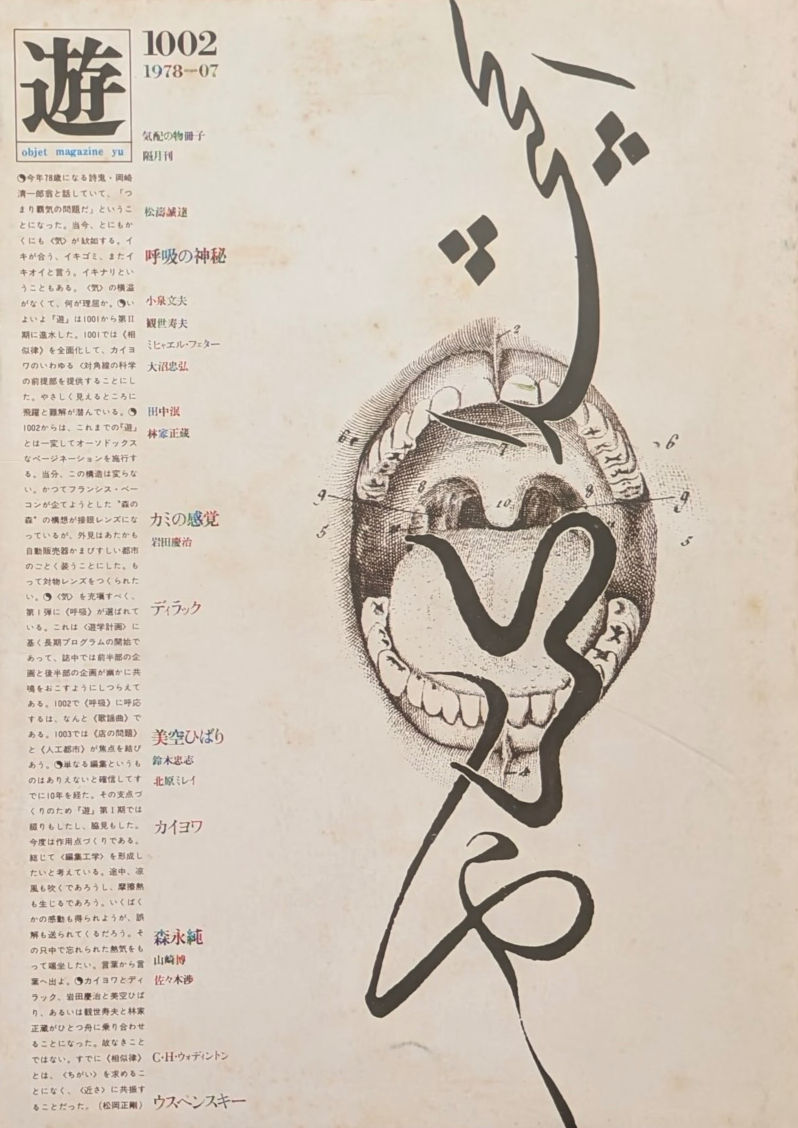 遊
objet magazine yu
1002
1978—07
気配の物冊子
隔月刊
松濤誠達
呼吸の神秘
小泉文夫
観世寿夫
ミヒャエル・フェター
大沼忠弘
田中泯
林家正蔵
カミの感覚
岩田慶治
ディラック
美空ひばり
鈴木忠志
北原ミレイ
カイヨワ
森永純
山崎博
佐々木渉
C・H・ウォディントン
ウスペンスキー
今年78歳になる詩鬼・岡崎
清一郎翁と話していて、「つ
まり覇気の問題だ」というこ
とになった。当今、とにもか
くにも〈気〉が欠如する。イ
キが合う、イキゴミ、またイ
キオイと言う。イキナリとい
うこともある。〈気〉の横溢
がなくて、何が理屈か。い
よいよ『遊』は1001から第II
期に進水した。1001では《相
似律》を全面化して、カイヨ
ワのいわゆる〈対角線の科学
の前提部を提供することにし
た。やさしく見えるところに
飛躍と難解が潜んでいる。
1002からは、これまでの『遊』
とは一変してオーソドックス
なページネーションを施行す
る。当分、この構造は変らな
い。かつてフランシス・ベー
コンが企てようとした“森の
森”の構想が接眼レンズにな
っているが、外見はあたかも
自動販売器かまびすしい都市
のごとく装うことにした。も
って対物レンズをつくられた
い。〈気〉を充塡すべく、
第1弾に《呼吸》が選ばれて
いる。これは〈遊学計画〉に
基く長期プログラムの開始で
あって、誌中では前半部の企
画と後半部の企画が幽かに共
鳴をおこすようにしつらえて
ある。1002で《呼吸》に呼応
するは、なんと《歌謡曲》で
ある。1003では《店の問題》
と《人工都市》が焦点を結び
あう。単なる編集というも
のはありえないと確信してす
でに10年を経た。その支点づ
くりのため『遊』第1期では
綴りもしたし、脇見もした。
今度は作用点づくりである。
総じて〈編集工学〉を形成し
たいと考えている。途中、涼
風も吹くであろうし、摩擦熱
も生じるであろう。いくばく
かの感動も得られようが、誤
解も送られてくるだろう。そ
の只中で忘れられた熱気をも
って端坐したい。言葉から言
葉へ出よ。カイヨワとディ
ラック、岩田慶治と美空ひば
り、あるいは観世寿夫と林家
正蔵がひとつ舟に乗り合わせ
ることになった。故なきこと
ではない。すでに《相似律》
とは、〈ちがい〉を求めるこ
とになく、〈近さ〉に共振す
ることだった。（松岡正剛）
2
6
6
7
8
8
9
9
10
5
5
4